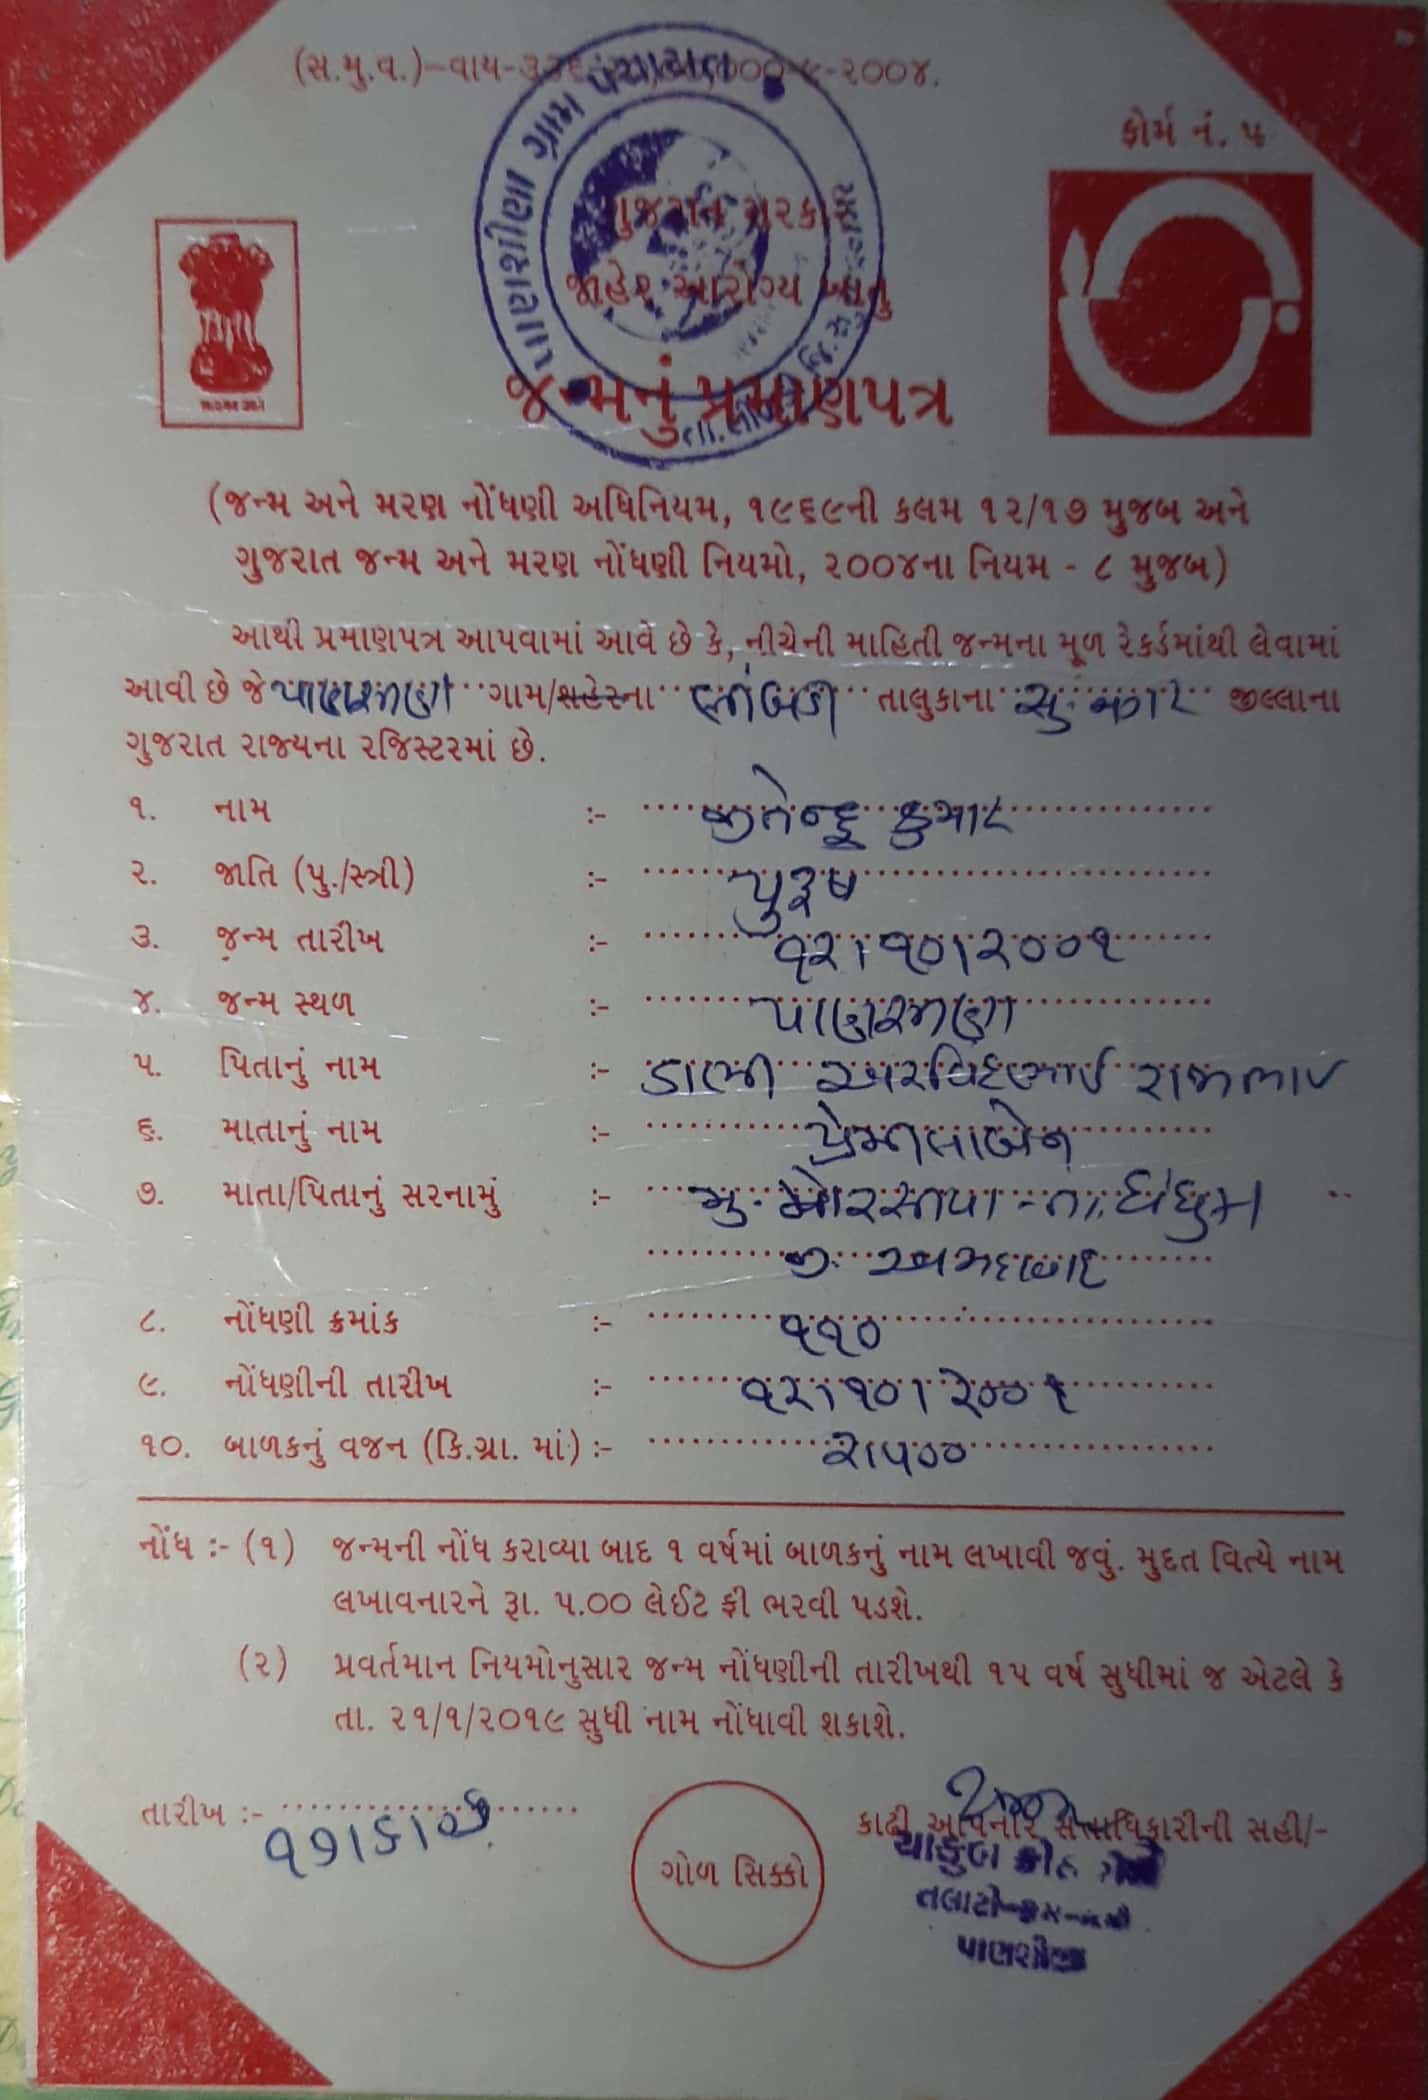 (સ.મુ.વ.)-વાય-૯-૨૦૦૪.
ફોર્મ નં. ૫
પાણશીણા ગ્રામ પંચાયત
ગુજરાત સરકાર
જાહેર આરોગ્ય ખાતુ
જન્મનું પ્રમાણપત્ર
(જન્મ અને મરણ નોંધણી અધિનિયમ, ૧૯૬૯ની કલમ ૧૨/૧૭ મુજબ અને
ગુજરાત જન્મ અને મરણ નોંધણી નિયમો, ૨૦૦૪ના નિયમ - ૮ મુજબ)
આથી પ્રમાણપત્ર આપવામાં આવે છે કે, નીચેની માહિતી જન્મના મૂળ રેકર્ડમાંથી લેવામાં
આવી છે જે પાણશીણા ગામ/શહેરના લીંબડી તાલુકાના સુ.નગર જીલ્લાના
ગુજરાત રાજ્યના રજિસ્ટરમાં છે.
૧. નામ :- જીતેન્દ્ર કુમાર
૨. જાતિ (પુ./સ્ત્રી) :- પુરૂષ
૩. જન્મ તારીખ :- ૧૨/૧૦/૨૦૦૧
૪. જન્મ સ્થળ :- પાણશીણા
૫. પિતાનું નામ :- ડાભી અરવિંદભાઈ રાજાભાઈ
૬. માતાનું નામ :- પ્રેમીલાબેન
૭. માતા/પિતાનું સરનામું :- મુ. - તા. ધંધુકા
જી. અમદાવાદ
૮. નોંધણી ક્રમાંક :- ૧૧૦
૯. નોંધણીની તારીખ :- ૧૨/૧૦/૨૦૦૧
૧૦. બાળકનું વજન (કિ.ગ્રા. માં) :- ૨/૫૦૦
નોંધ :- (૧) જન્મની નોંધ કરાવ્યા બાદ ૧ વર્ષમાં બાળકનું નામ લખાવી જવું. મુદત વિત્યે નામ
લખાવનારને રૂા. ૫.૦૦ લેઈટ ફી ભરવી પડશે.
(૨) પ્રવર્તમાન નિયમોનુસાર જન્મ નોંધણીની તારીખથી ૧૫ વર્ષ સુધીમાં જ એટલે કે
તા. ૨૧/૧/૨૦૧૯ સુધી નામ નોંધાવી શકાશે.
તારીખ :-
કાઢી આપનાર સત્તાધિકારીની સહી/-
ગોળ સિક્કો
યાકુબ
તલાટી-કમ-મંત્રી
પાણશીણા